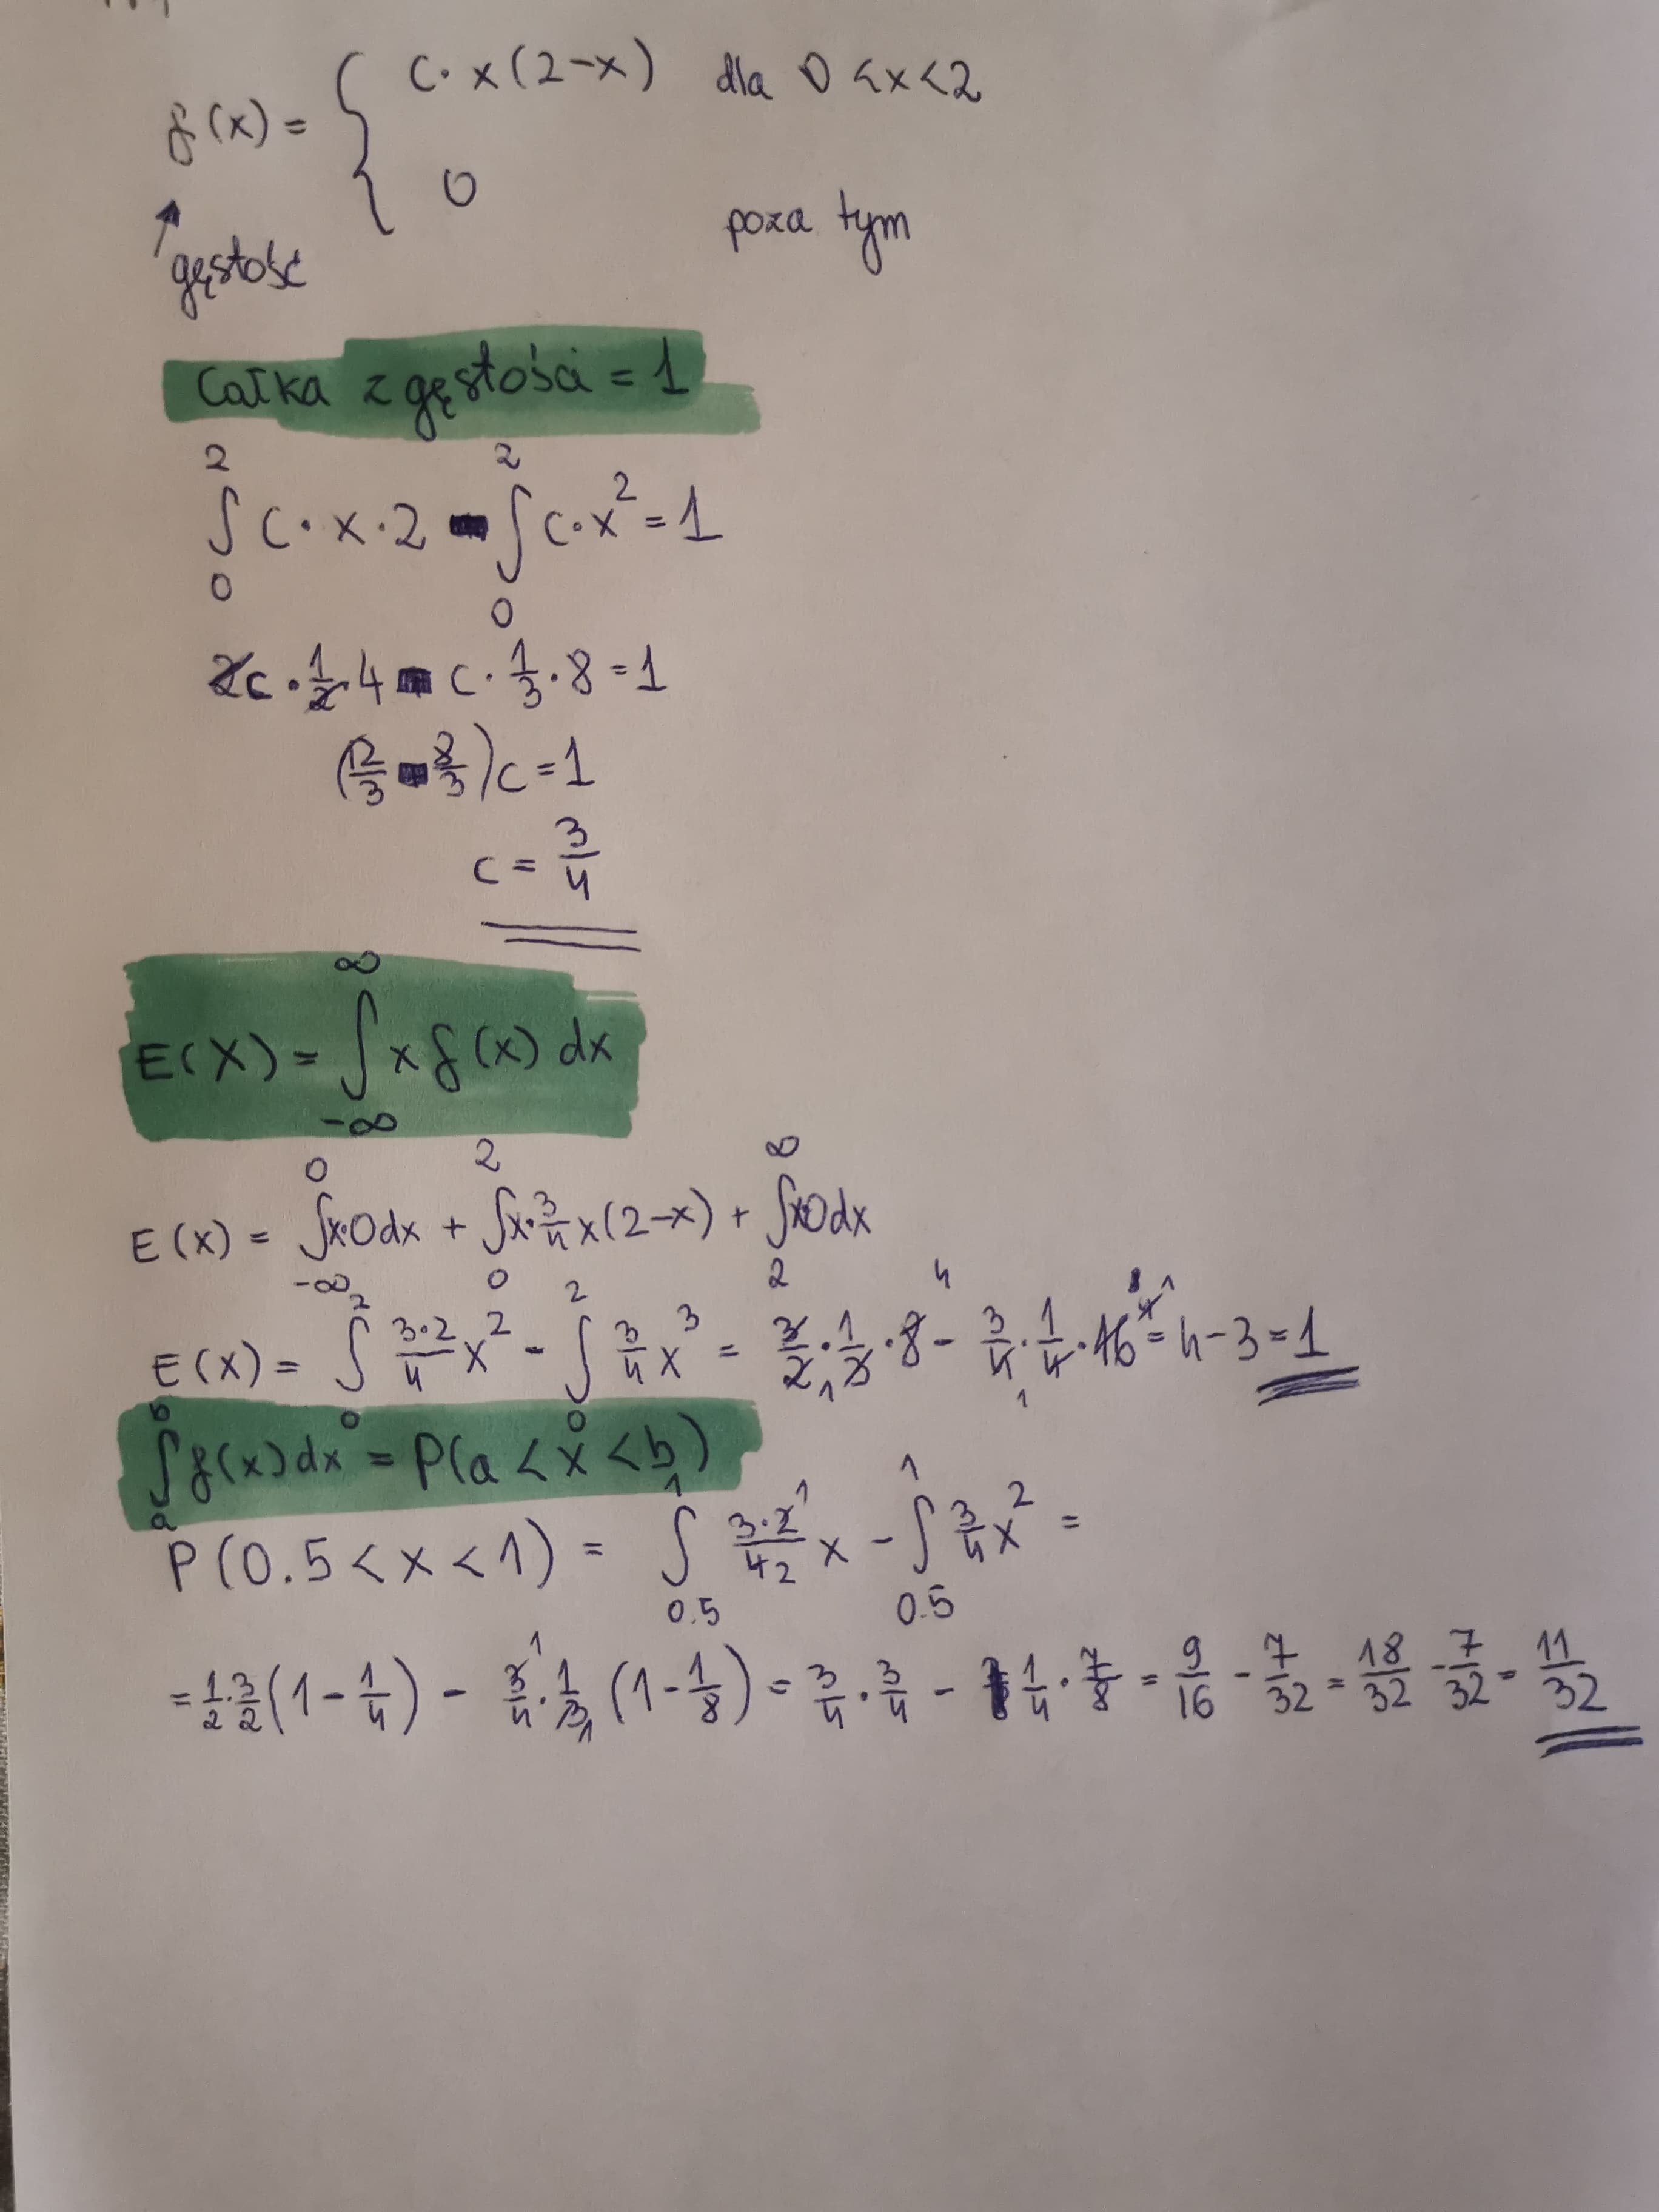 f(x) = { C · x(2-x) dla 0 < x < 2
0 poza tym
gęstość
Całka z gęstości = 1
∫₀² C · x · 2 - ∫₀² C · x² = 1
2c · 1/2 · 4 - c · 1/3 · 8 = 1
(12/3 - 8/3)c = 1
c = 3/4
E(X) = ∫_{-∞}^{∞} x f(x) dx
E(x) = ∫_{-∞}^{0} x·0dx + ∫₀² x · 3/4 x(2-x) + ∫₂^{∞} x0dx
E(x) = ∫₀² 3·2/4 x² - ∫₀² 3/4 x³ = 3/2 · 1/3 · 8 - 3/4 · 1/4 · 16 = 4 - 3 = 1
∫ₐᵇ f(x)dx = P(a < x < b)
P(0.5 < x < 1) = ∫_{0.5}^{1} 3·2/4 x - ∫_{0.5}^{1} 3/4 x² =
= 1/2 · 3/2 (1 - 1/4) - 3/4 · 1/3 (1 - 1/8) = 3/4 · 3/4 - 1/4 · 7/8 = 9/16 - 7/32 = 18/32 - 7/32 = 11/32